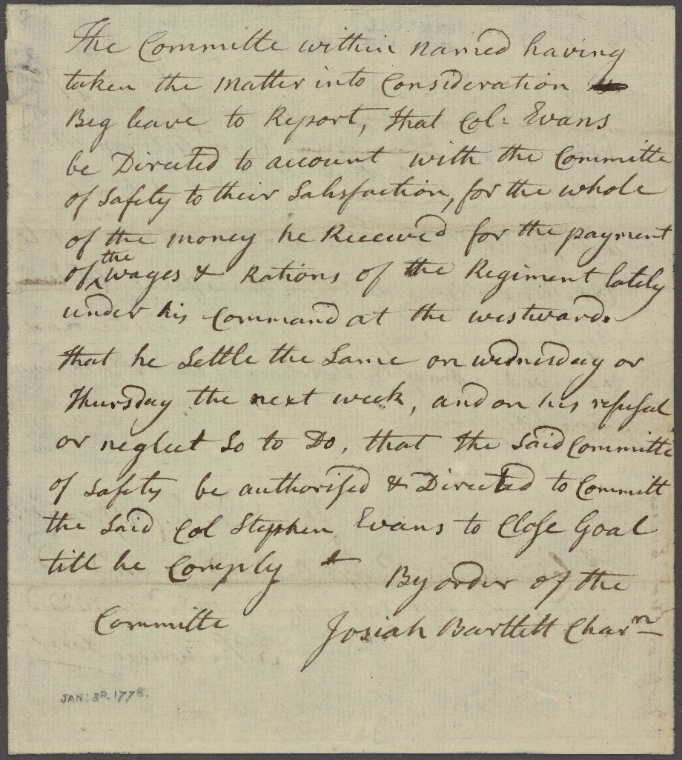 The Committe within named having
taken the Matter into Consideration
Beg leave to Report, that Col: Evans
be Directed to account with the Committe
of Safety to their Satisfaction, for the whole
of the money he Received for the payment
of the wages & Rations of the Regiment lately
under his Command at the westward.
that he Settle the Same on wednesday or
Thursday the next week, and on his refusal
or neglect So to Do, that the Said Committe
of Safety be authorised & Directed to Committ
the Said Col Stephen Evans to Close Goal
till he Comply
By order of the
Committe
Josiah Bartlett Charmn
JAN: 3D. 1778.